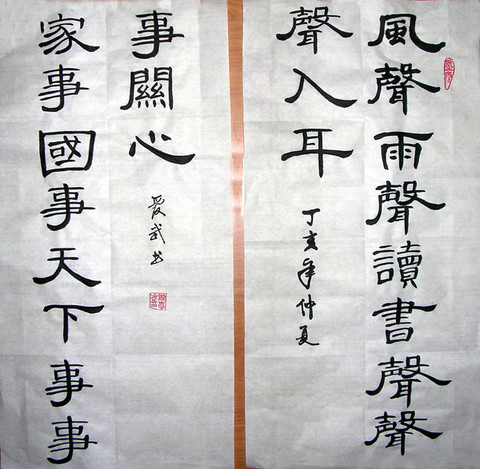 風聲雨聲讀書聲聲
聲入耳
丁亥年仲夏
家事國事天下事事
事關心
爱武书